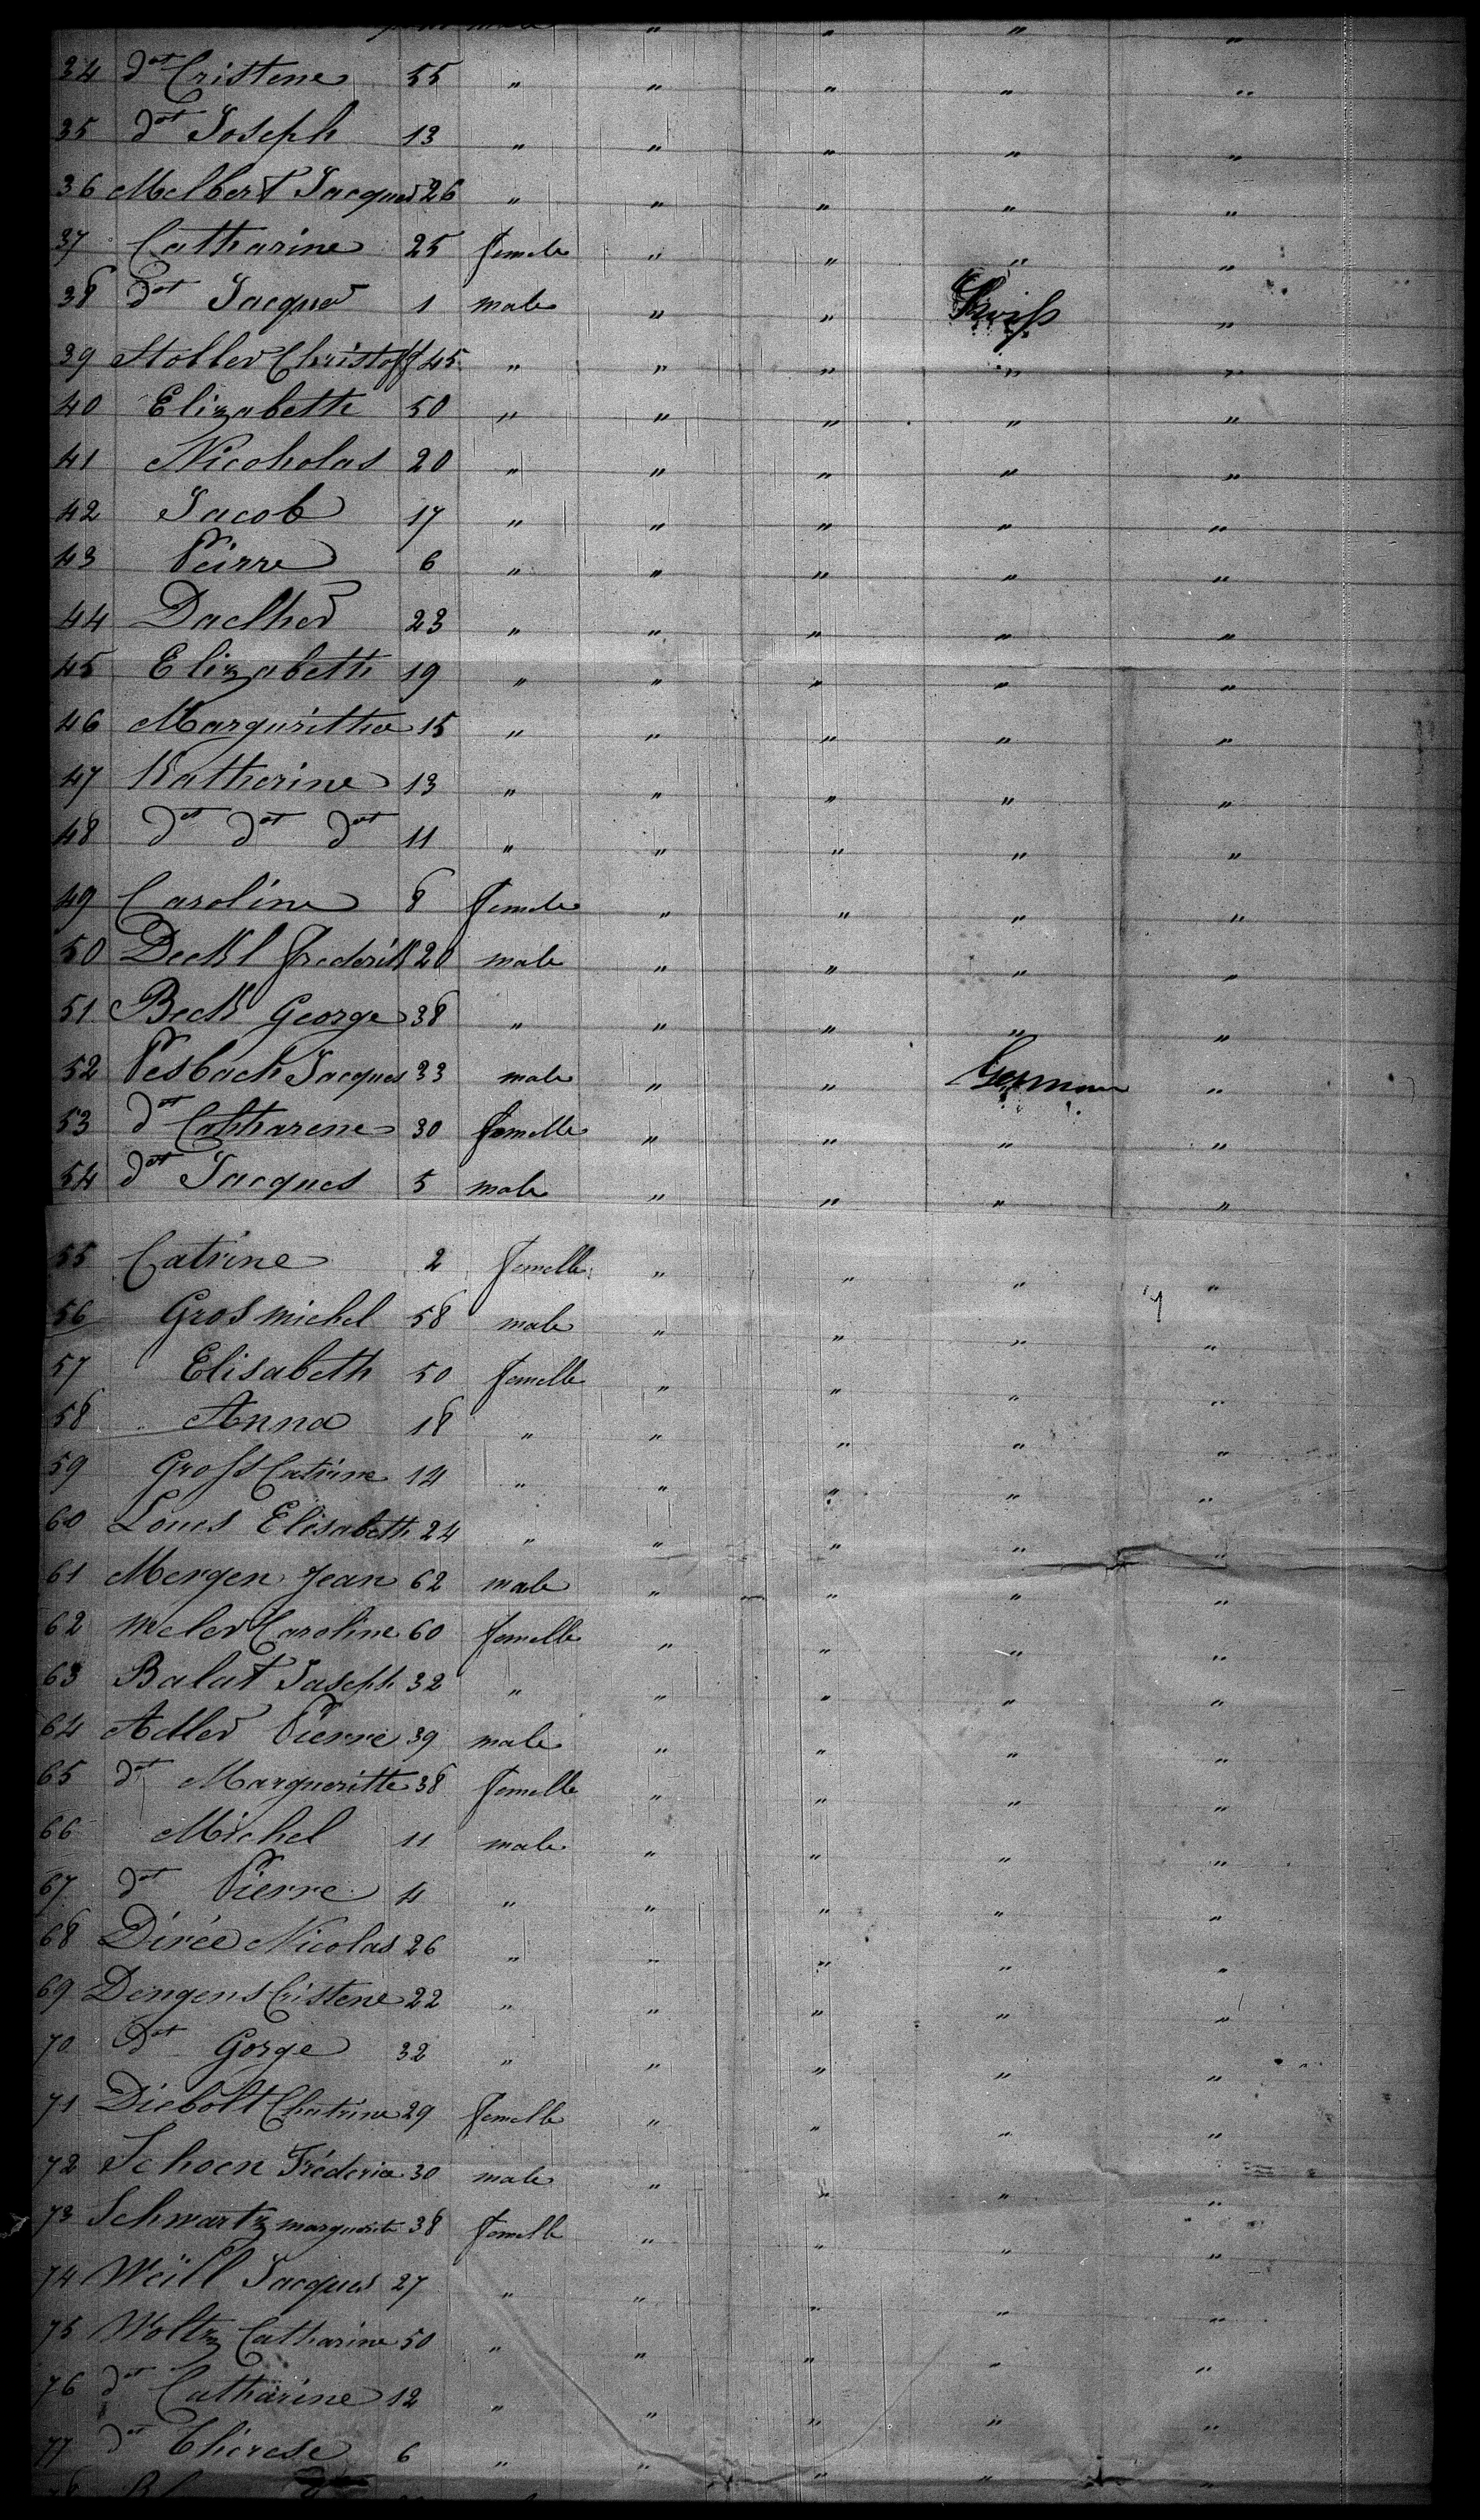 34 dot Cristene 55 " " " " "
35 dot Joseph 13 " " " " "
36 Melbert Jacques 26 " " " " "
37 Catharine 25 female " " " "
38 dot Jacques 1 male " " Swiss "
39 Stoller Christoff 45 " " " " "
40 Elizabeth 50 " " " " "
41 Nicoholas 20 " " " " "
42 Jacob 17 " " " " "
43 Peirre 6 " " " " "
44 Daelher 23 " " " " "
45 Elizabeth 19 " " " " "
46 Marguritha 15 " " " " "
47 Katherine 13 " " " " "
48 dot dot dot 11 " " " " "
49 Caroline 8 female " " " "
50 Deckl Frederik 20 male " " " "
51 Beck George 38 " " " " "
52 Pesbach Jacques 33 male " " German "
53 dot Catharene 30 femelle " " " "
54 dot Jacques 5 male " " " "
55 Catrine 2 femelle " " " "
56 Gros michel 58 male " " " "
57 Elisabeth 50 femelle " " " "
58 Anna 18 " " " " "
59 Gross Catrine 14 " " " " "
60 Loues Elisabeth 24 " " " " "
61 Mergen Jean 62 male " " " "
62 Meler Caroline 60 femelle " " " "
63 Balat Joseph 32 " " " " "
64 Adler Pierre 39 male " " " "
65 dot Margueritte 38 femelle " " " "
66 Michel 11 male " " " "
67 dot Pierre 4 " " " " "
68 Dirée Nicolas 26 " " " " "
69 Dengens Cristene 22 " " " " "
70 dot Gorge 32 " " " " "
71 Diebolt Chatrine 29 femelle " " " "
72 Schoen Fréderic 30 male " " " "
73 Schwartz marguerite 38 femelle " " " "
74 Weill Jacques 27 " " " " "
75 Woltz Catharine 50 " " " " "
76 dot Catharine 12 " " " " "
77 dot Thérese 6 " " " " "